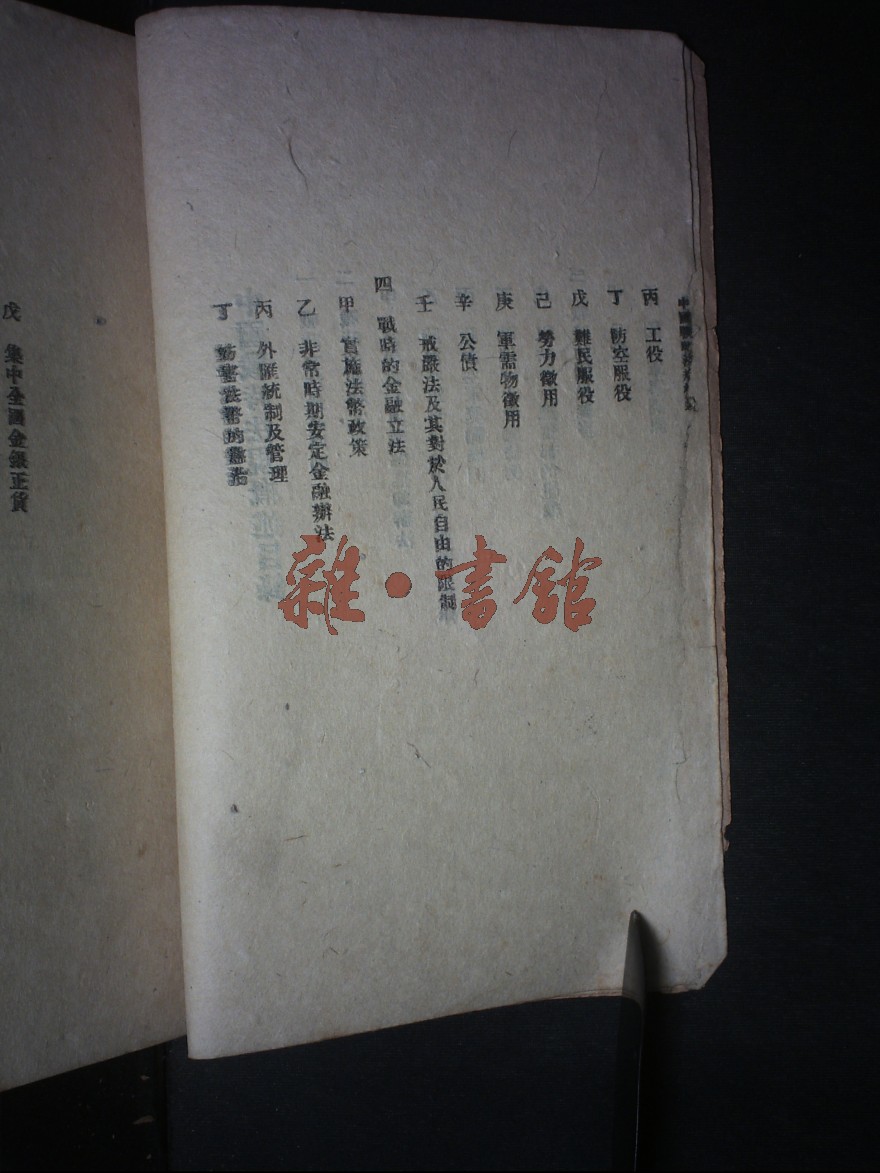 丙 工役
丁 防空服役
戊 難民服役
己 勞力徵用
庚 軍需物徵用
辛 公債
壬 戒嚴法及其對於人民自由的限制
四 戰時的金融立法
甲 實施法幣政策
乙 非常時期安定金融辦法
丙 外匯統制及管理
丁 妨害法幣的
戊 集中全國金銀正貨
雜・書館